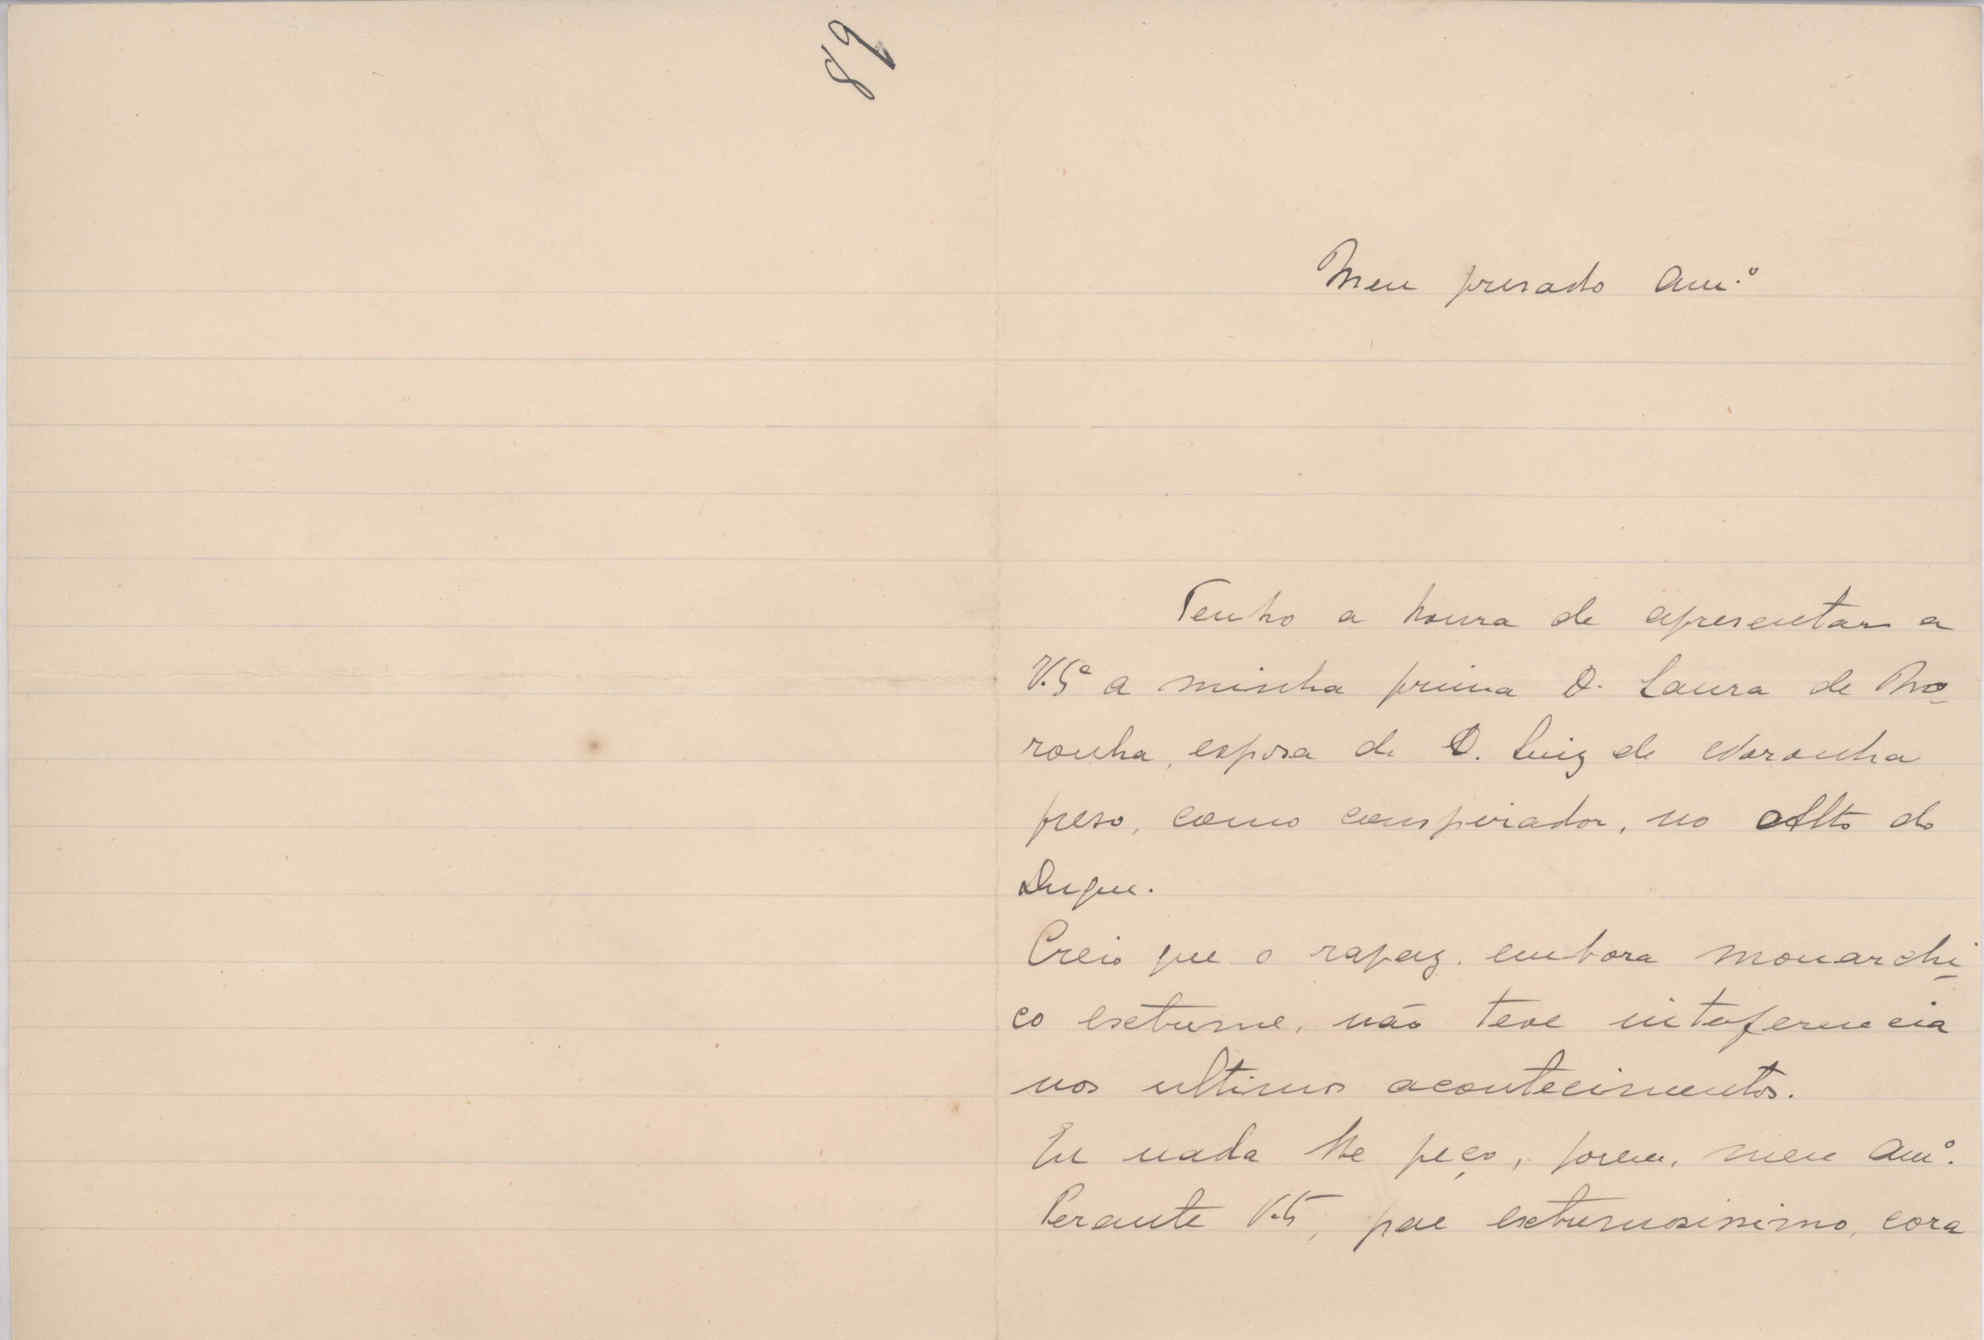 98
Meu presado Am.º
Tenho a honra de apresentar a
V. Ex.ª a minha prima D. Laura de No-
ronha, esposa de D. Luiz de Noronha
preso, como conspirador, no Alto do
Duque.
Creio que o rapaz, embora monarchi-
co extreme, não teve interferencia
nos ultimos acontecimentos.
Eu nada lhe peço, porem, meu Am.º
Perante V. Ex., pae extremosissimo, cora